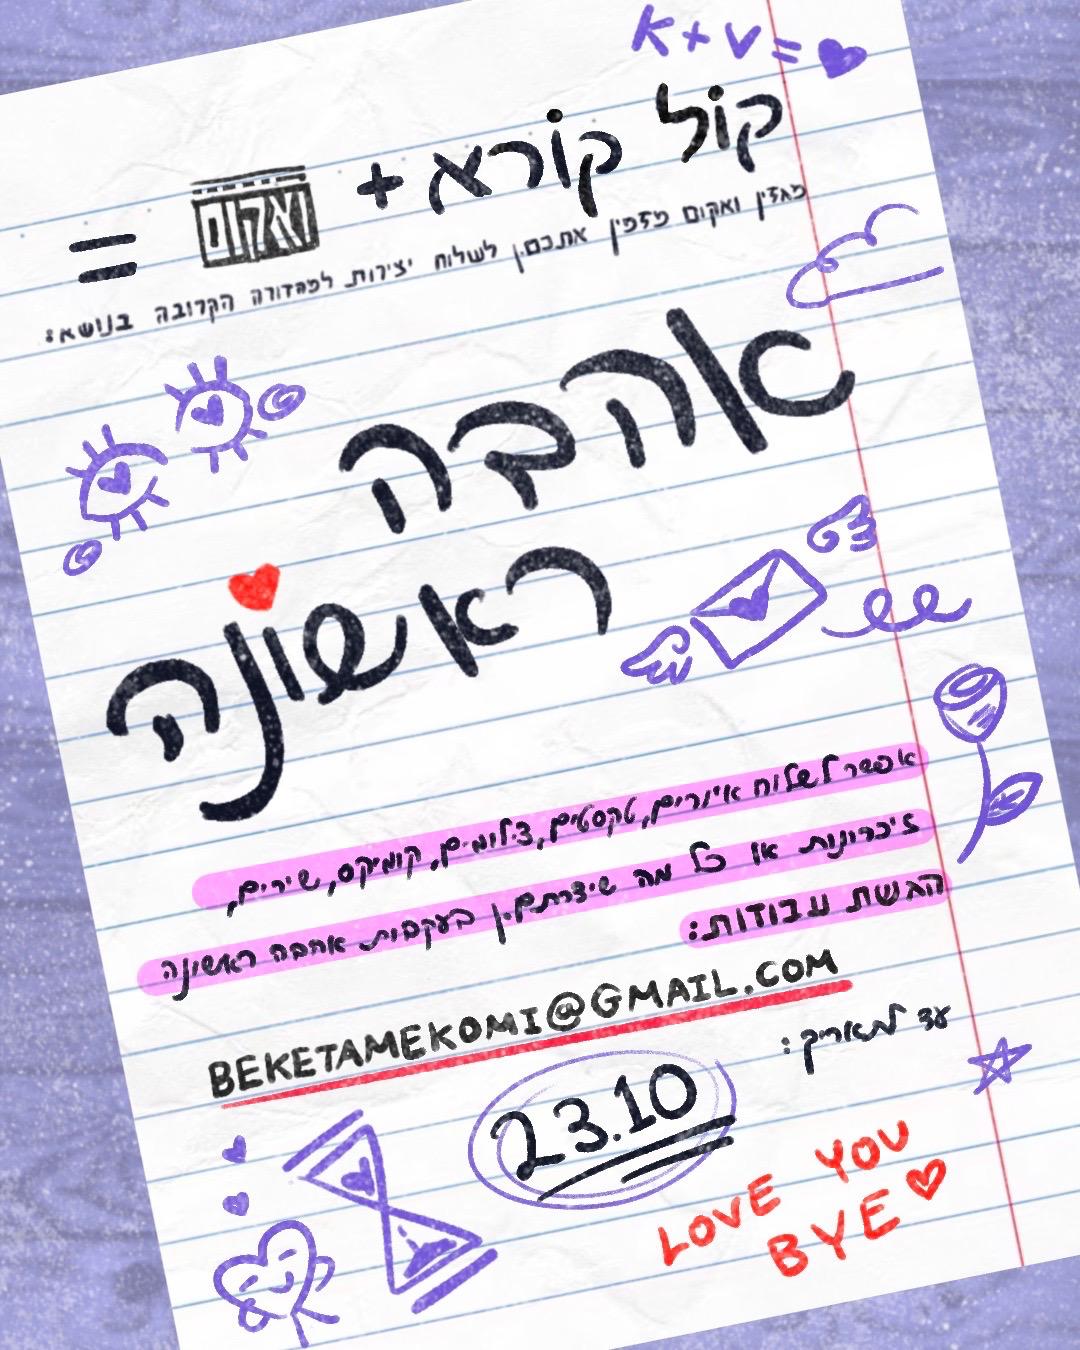 K + V =
קול קורא + ואקום =
מגזין ואקום מזמין אתכם.ן לשלוח יצירות למהדורה הקרובה בנושא:
אהבה
ראשונה
אפשר לשלוח איורים, טקסטים, צילומים, קומיקס, שירים,
זיכרונות או כל מה שיצרתם.ן בעקבות אהבה ראשונה
הגשת עבודות:
BEKETAMEKOMI@GMAIL.COM
עד לתאריך:
23.10
LOVE YOU
BYE